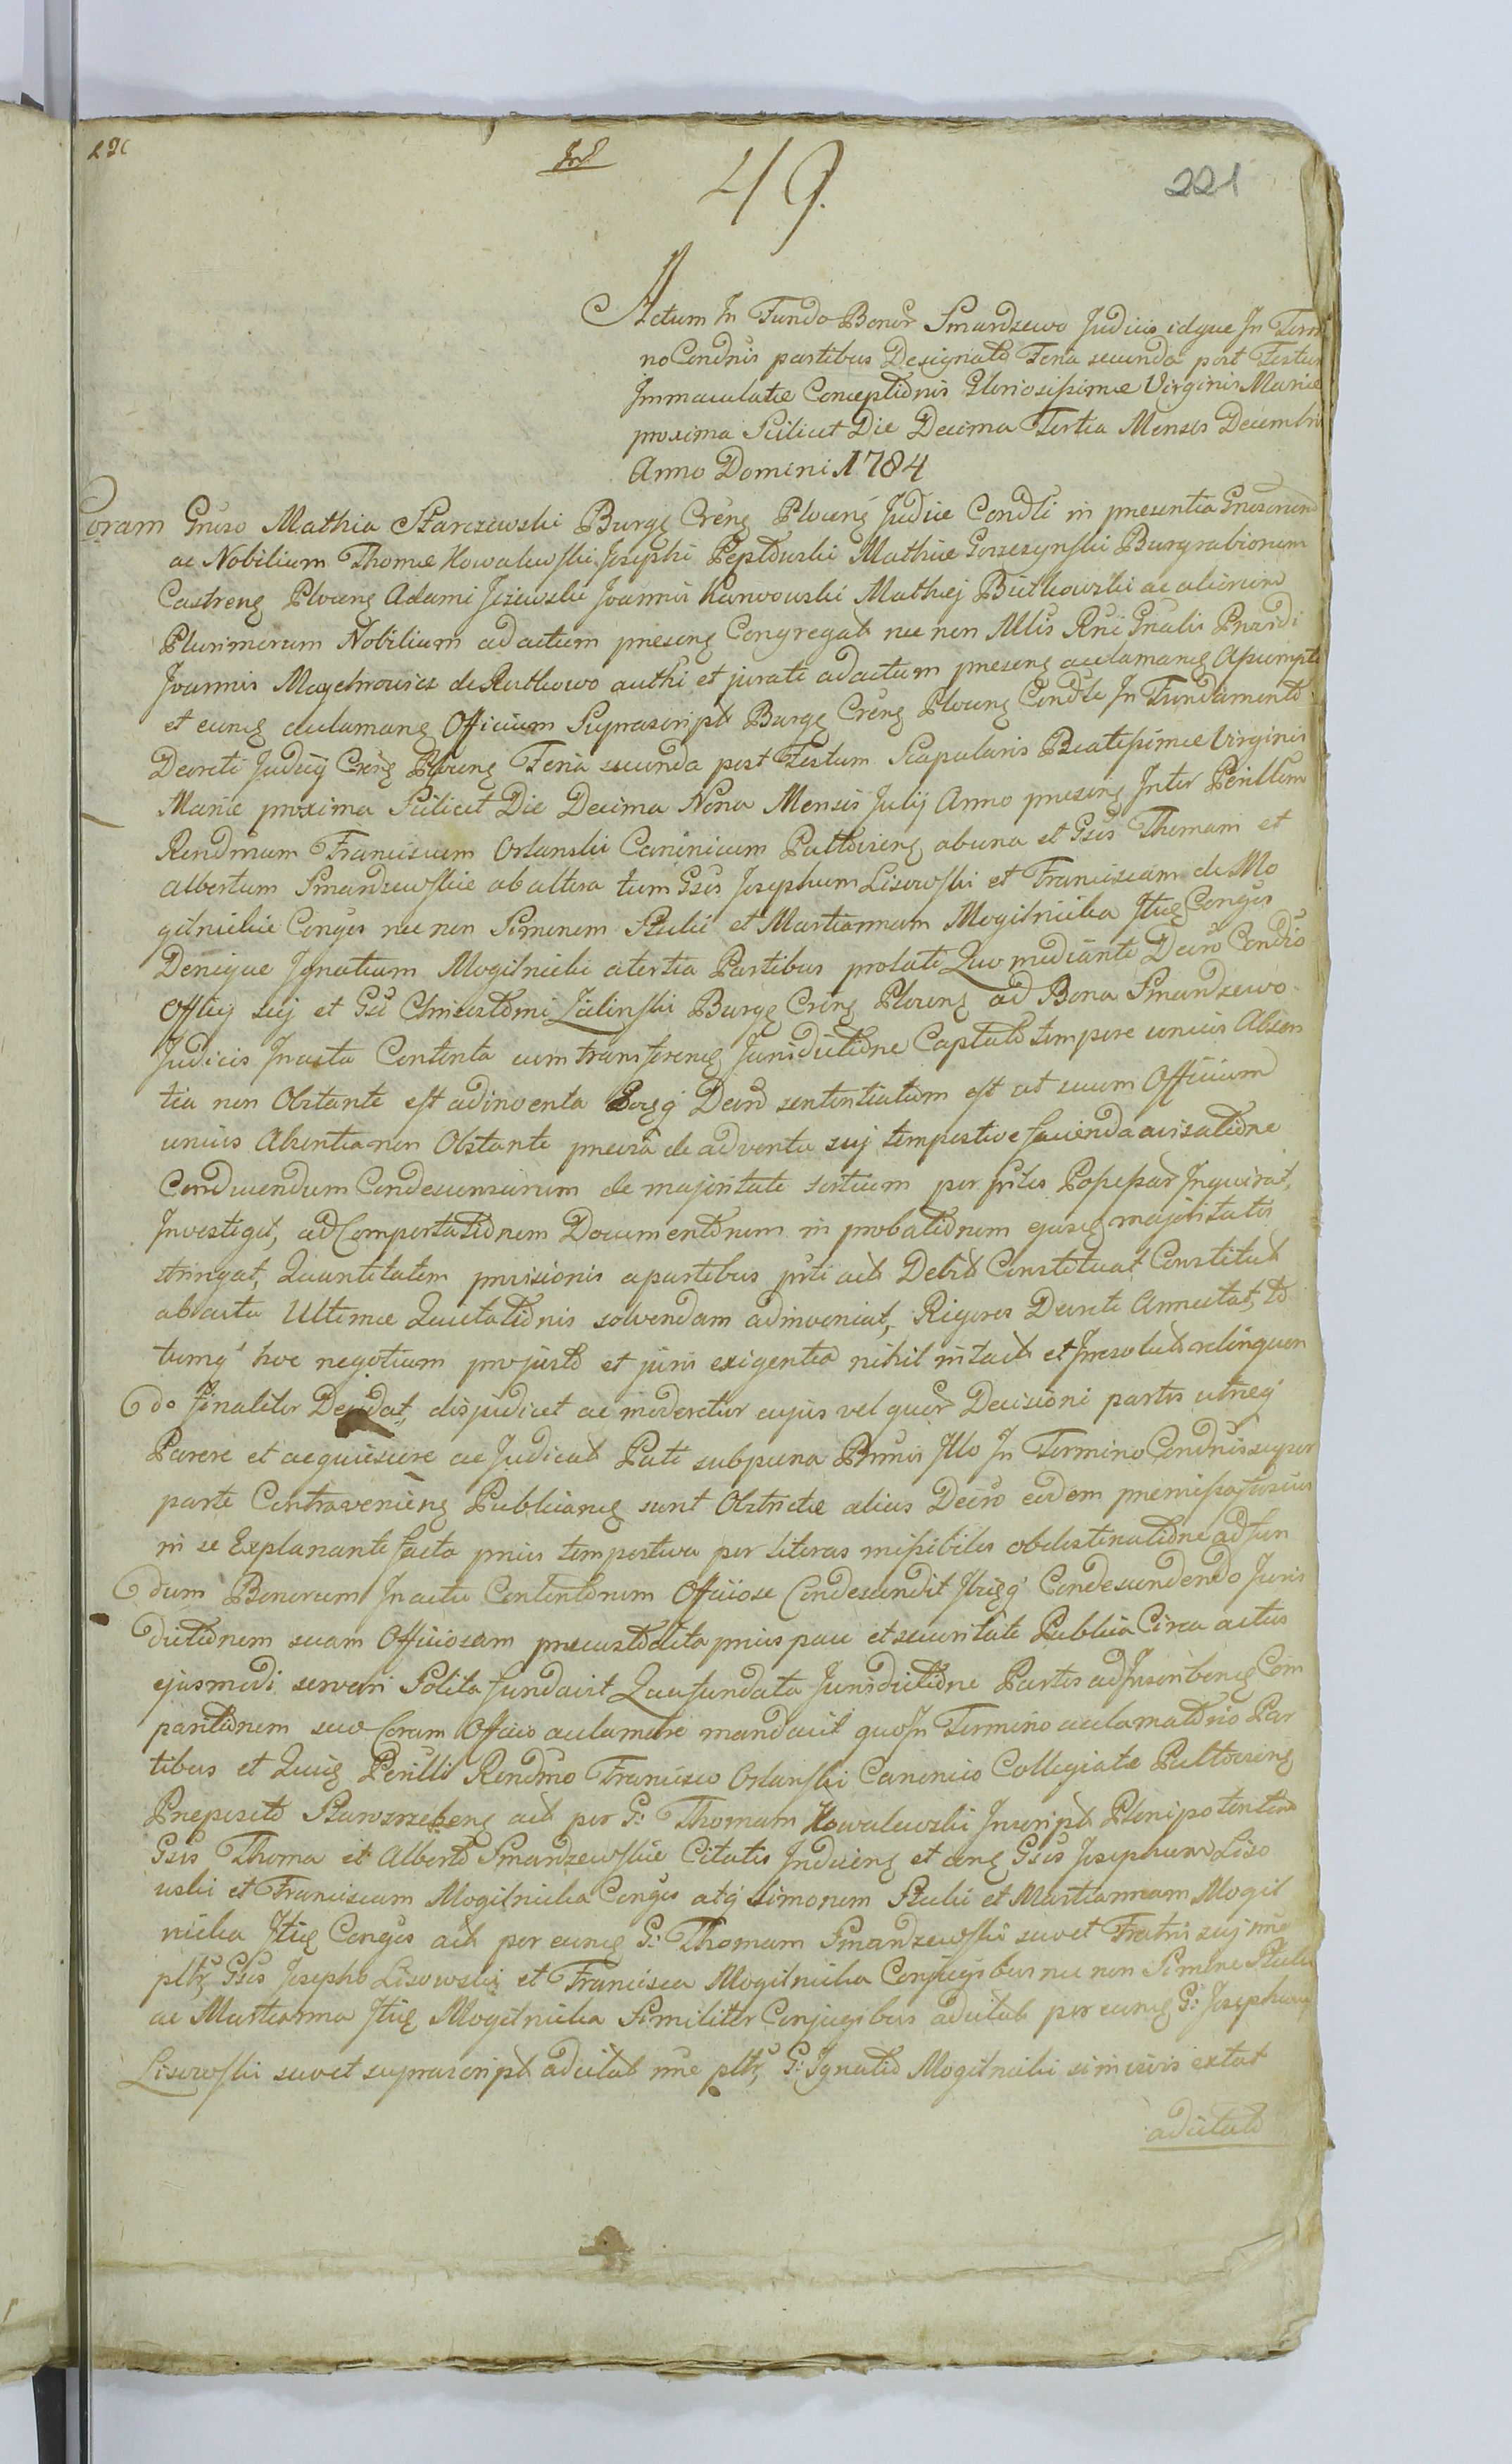 49.
221
Actum In Fundo Bonor Smardzewo Judiciis idque In Termi
no Condnis partibus Designato Feria secunda post Festum
Immaculatae Conceptionis Gloriosissimae Virginis Mariae
proxima Scilicet Die Decima Tertia Mensis Decembris
Anno Domini 1784
Coram Gnoso Mathia Starczewski Burgo Creng Ploceng Judice Condli in presentia Gnosorum
ac Nobilium Thomae Kowalewski Josephi Peplowski Mathiae Gorzczynski Burgrabiorum
Castreng Ploceng Adami Jezewski Joannis Karwowski Mathiej Butkowski ac aliorum
Plurimorum Nobilium ad actum preseng Congregat nec non Mlis Rni Gnalis Prædi
Joannis Majchrowicz de Rutkowo authi et jurati ad actum preseng acclamang Assumpti
et eung acclamang Officium Suprascript Burgo Creng Ploceng Condle In Fundamento
Decreti Judicij Creng Ploceng Feria secunda post Festum Scapularis Beatissimae Virginis
Mariae proxima Scilicet Die Decima Nona Mensis Julij Anno preseng Inter Perillem
Rendmum Franciscum Orlanski Canonicum Pultovieng ab una et Gsos Thomam et
Albertum Smardzewskie ab altera tum Gsos Josephum Lisowski et Franciscam de Mo
gilnickie Conges nec non Simonem Stulii et Mariannam Mogilnicka Itidg Conges
Denique Ignatium Mogilnicki a tertia Partibus prolati Quo mediante Decro Condlo
Officij suj et Gsi Chrisostomi Zielinski Burgo Creng Ploceng ad Bona Smardzewo
Judiciis In acta Contenta cum transfereng Jurisdictione Captato tempore unius Absen
tia non Obstante est adinventa Eoqg Decro sententiatum est ut suum Officium
unius Absentia non Obstante previa de adventu suj tempestive facienda avisatione
Conducendum Condescensurum de majoritate sortium per pntes Possessar Inquirat,
Investiget, ad Comportationem Documentorum in probationem ejusg majoritatis
stringat, Quantitatem provisionis a partibus pnti acto Debit Constituat Constitut
ab actu Ultimae Quietationis solvendam adinveniat, Rigores Decreti Annectat, to
tumq hoc negotium pro justo et juris exigentia nihil intact et Irresolut relinquen
do finaliter Decidat, disjudicet ac moderetur cujus vel quor Decisioni partes utraeq
Parere et acquiescere ac Judicat Pati sub poena Bannis Illo In Termino Condnis super
parte Contravenieng Publicang sunt Obstrictae alius Decro eodem premissa fusius
in se Explanante facta prius tempestiva per literas missibiles obdestinatione ad fun
dum Bonorum In actu Contentorum Officiose Condescendit Ibiqg Condescendendo Juris
dictionem suam Officiosam precustodita prius pace et securitate Publica Circa actus
ejusmodi servari Solita fundavit Qua fundata Jurisdictione Partes ad Inscribeng Com
paritionem suo Coram Officio acclamare mandavit quo In Termino acclamatorio Par
tibus et Quidg Perilli Rendmo Francisco Orlanski Canonico Collegiatae Pultovieng
Preposito Starozrzebeng act per G: Thomam Kowalewski Inscript Plenipotentem
Gsis Thoma et Alberto Smardzewskie Citatis Induceng et eung Gsos Josephum Liso
wski et Franciscam Mogilnicka Conges atq Simonem Stulii et Mariannam Mogil
nicka Itidg Conges act per eung G: Thomam Smardzewski suo et Fratris suj nne
pltr, Gsis Josepho Lisowski et Francisca Mogilnicka Conjugibus nec non Simone Stulii
ac Marianna Itidg Mogilnicka Similiter Conjugibus adcitat per eung G: Josephum
Lisowski suo et suprascript adcitat nne pltr, G: Ignatio Mogilnicki si in vivis extat
adcitato